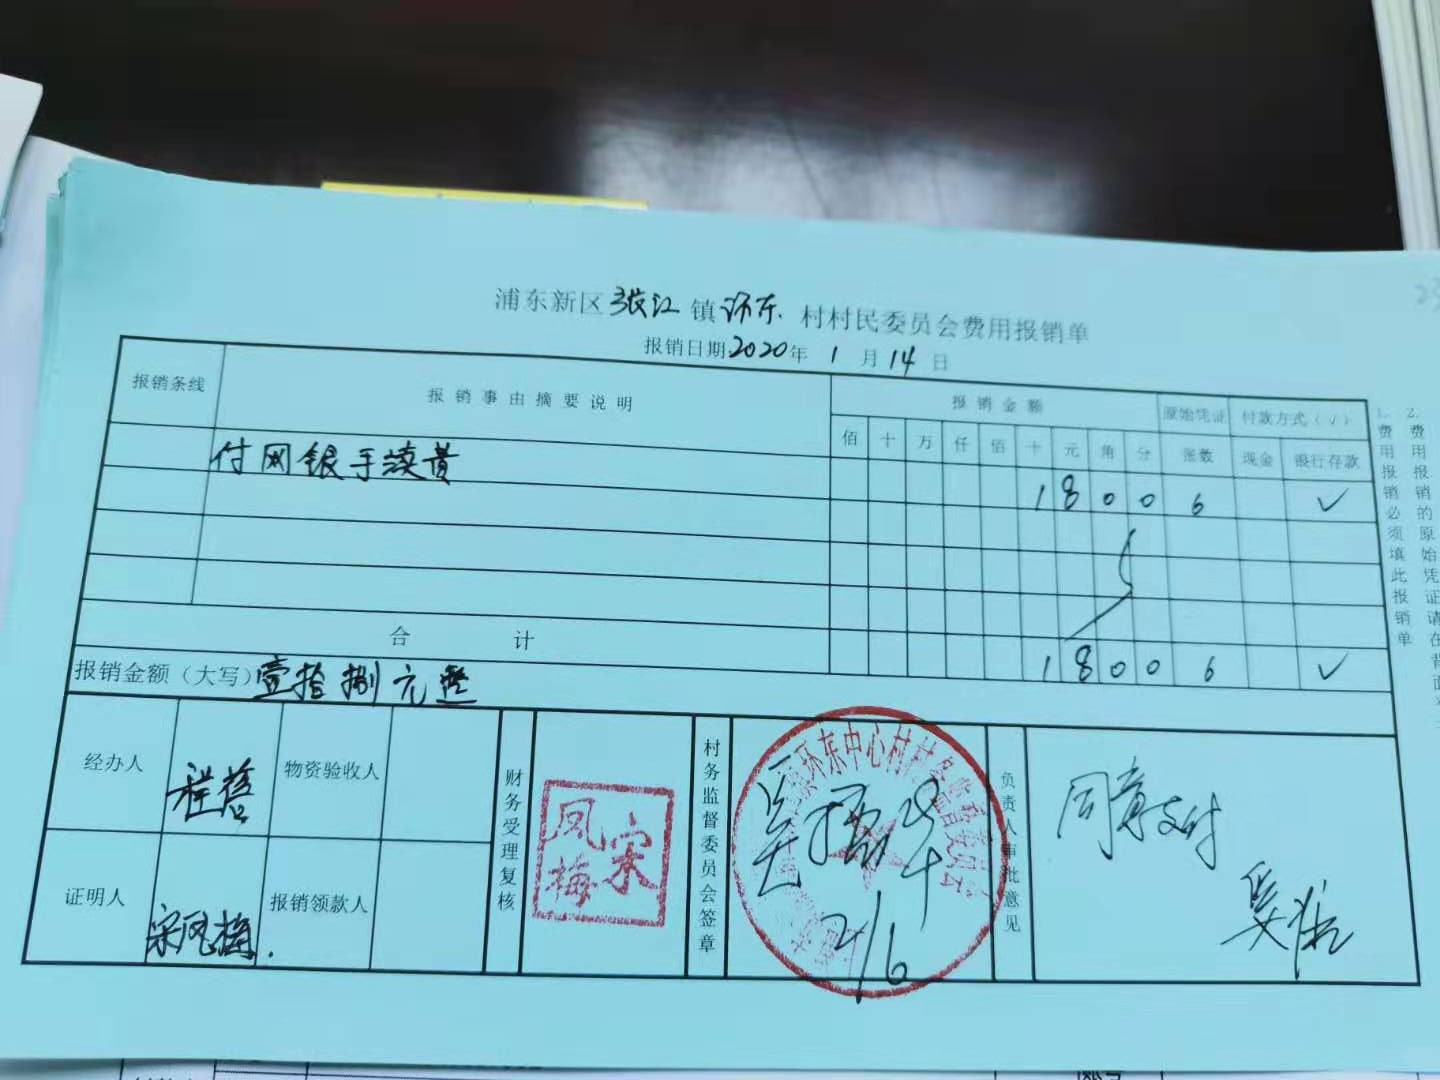 浦东新区张江镇环东村村民委员会费用报销单
报销日期:2020年1月14日
报销条线 报销事由摘要说明 报销金额 原始凭证 付款方式(√)
佰 十 万 仟 佰 十 元 角 分 张数 现金 银行存款
付网银手续费 1 8 0 0 6 √
合计 1 8 0 0 6 √
报销金额(大写)壹拾捌元整
经办人 物资验收人
证明人 宋凤梅. 报销领款人
财务受理复核
宋凤梅
村务监督委员会签章
环东中心村村务监督委员会
2/6
负责人审批意见
同意支付
1.费用报销必须填此报销单
2.费用报销的原始凭证请在背面